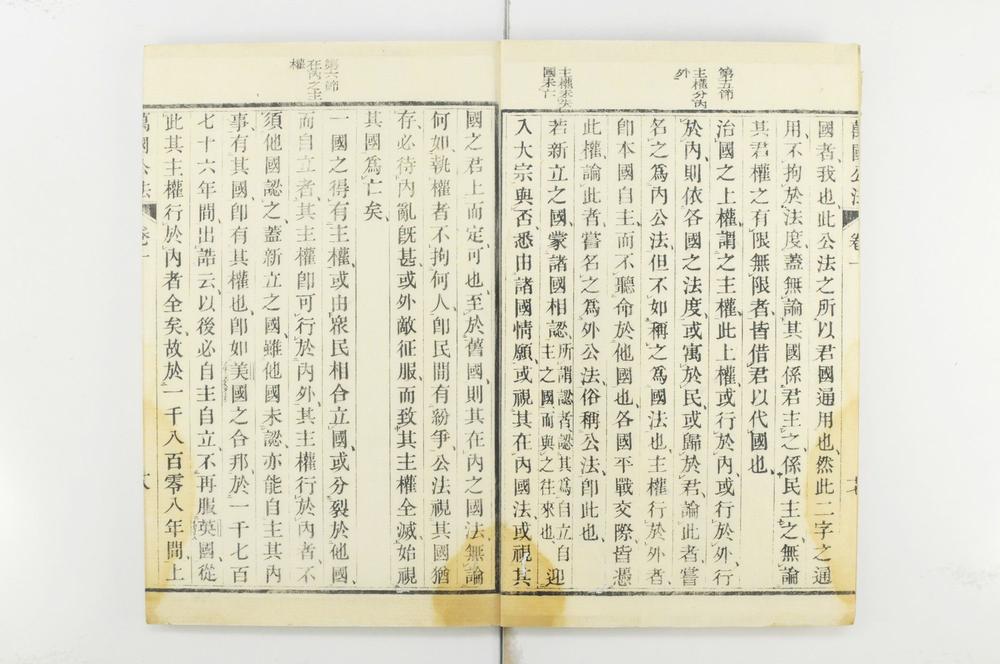 萬國公法
卷一
第五節
主權分內
外
主權未失
國未亡
國者、我也、此公法之所以君國通用也、然此二字之通
用、不拘於法度、蓋無論其國係君主之、係民主之、無論
其君權之有限無限者、皆借君以代國也、
治國之上權、謂之主權、此上權或行於內、或行於外、行
於內、則依各國之法度、或寓於民、或歸於君、論此者、嘗
名之爲內公法、但不如稱之爲國法也、主權行於外者、
卽本國自主、而不聽命於他國也、各國平戰交際、皆憑
此權、論此者、嘗名之爲外公法、俗稱公法、卽此也、
若新立之國、蒙諸國相認、所謂認者、認其爲自立自主之國、而與之往來也、迎
入大宗與否、悉由諸國情願、或視其在內國法、或視其
第六節
在內之主
權
國之君上而定、可也、至於舊國、則其在內之國法無論
何如、執權者不拘何人、卽民間有紛爭、公法視其國猶
存、必待內亂旣甚、或外敵征服、而致其主權全滅、始視
其國爲亡矣、
一國之得有主權、或由衆民相合立國、或分裂於他國、
而自立者、其主權卽可行於內外、其主權行於內者、不
須他國認之、蓋新立之國、雖他國未認、亦能自主其內
事、有其國卽有其權也、卽如美國之合邦、於一千七百
七十六年間、出誥云、以後必自主自立、不再服英國、從
此其主權行於內者全矣、故於一千八百零八年間、上
萬國公法
卷一